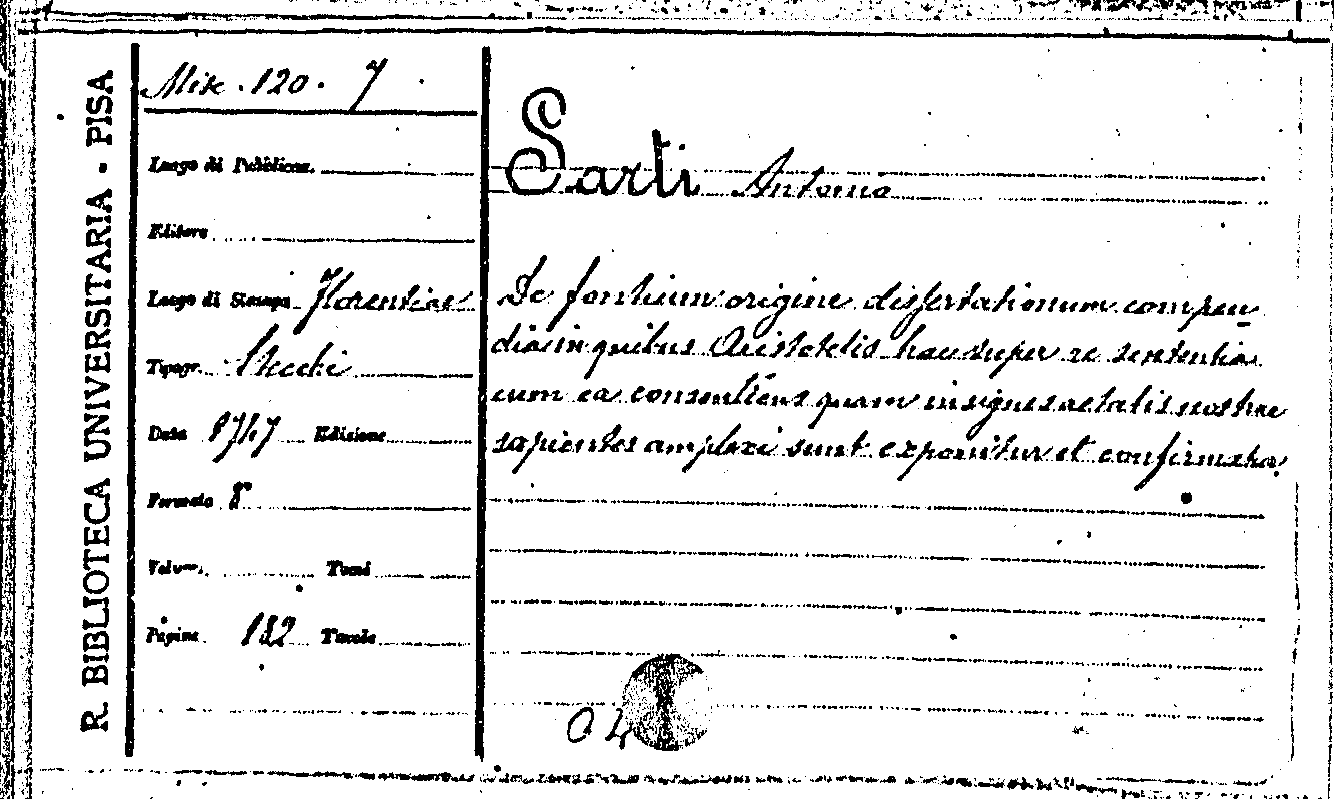 R. BIBLIOTECA UNIVERSITARIA - PISA
Misc. 120. 7
Luogo di Pubblicaz.
Editore
Luogo di Stampa Florentiae
Tipogr. Stecchi
Data 1747 Edizione
Formato 8°
Volum. Tomi
Pagine 132 Tavole
Sarti Antonio
De fontium origine dissertationum compen
dia in quibus Aristotelis hac super re sententia
cum ea consentiens quam insignes aetatis nostrae
sapientes amplexi sunt exponitur et confirmata.
04